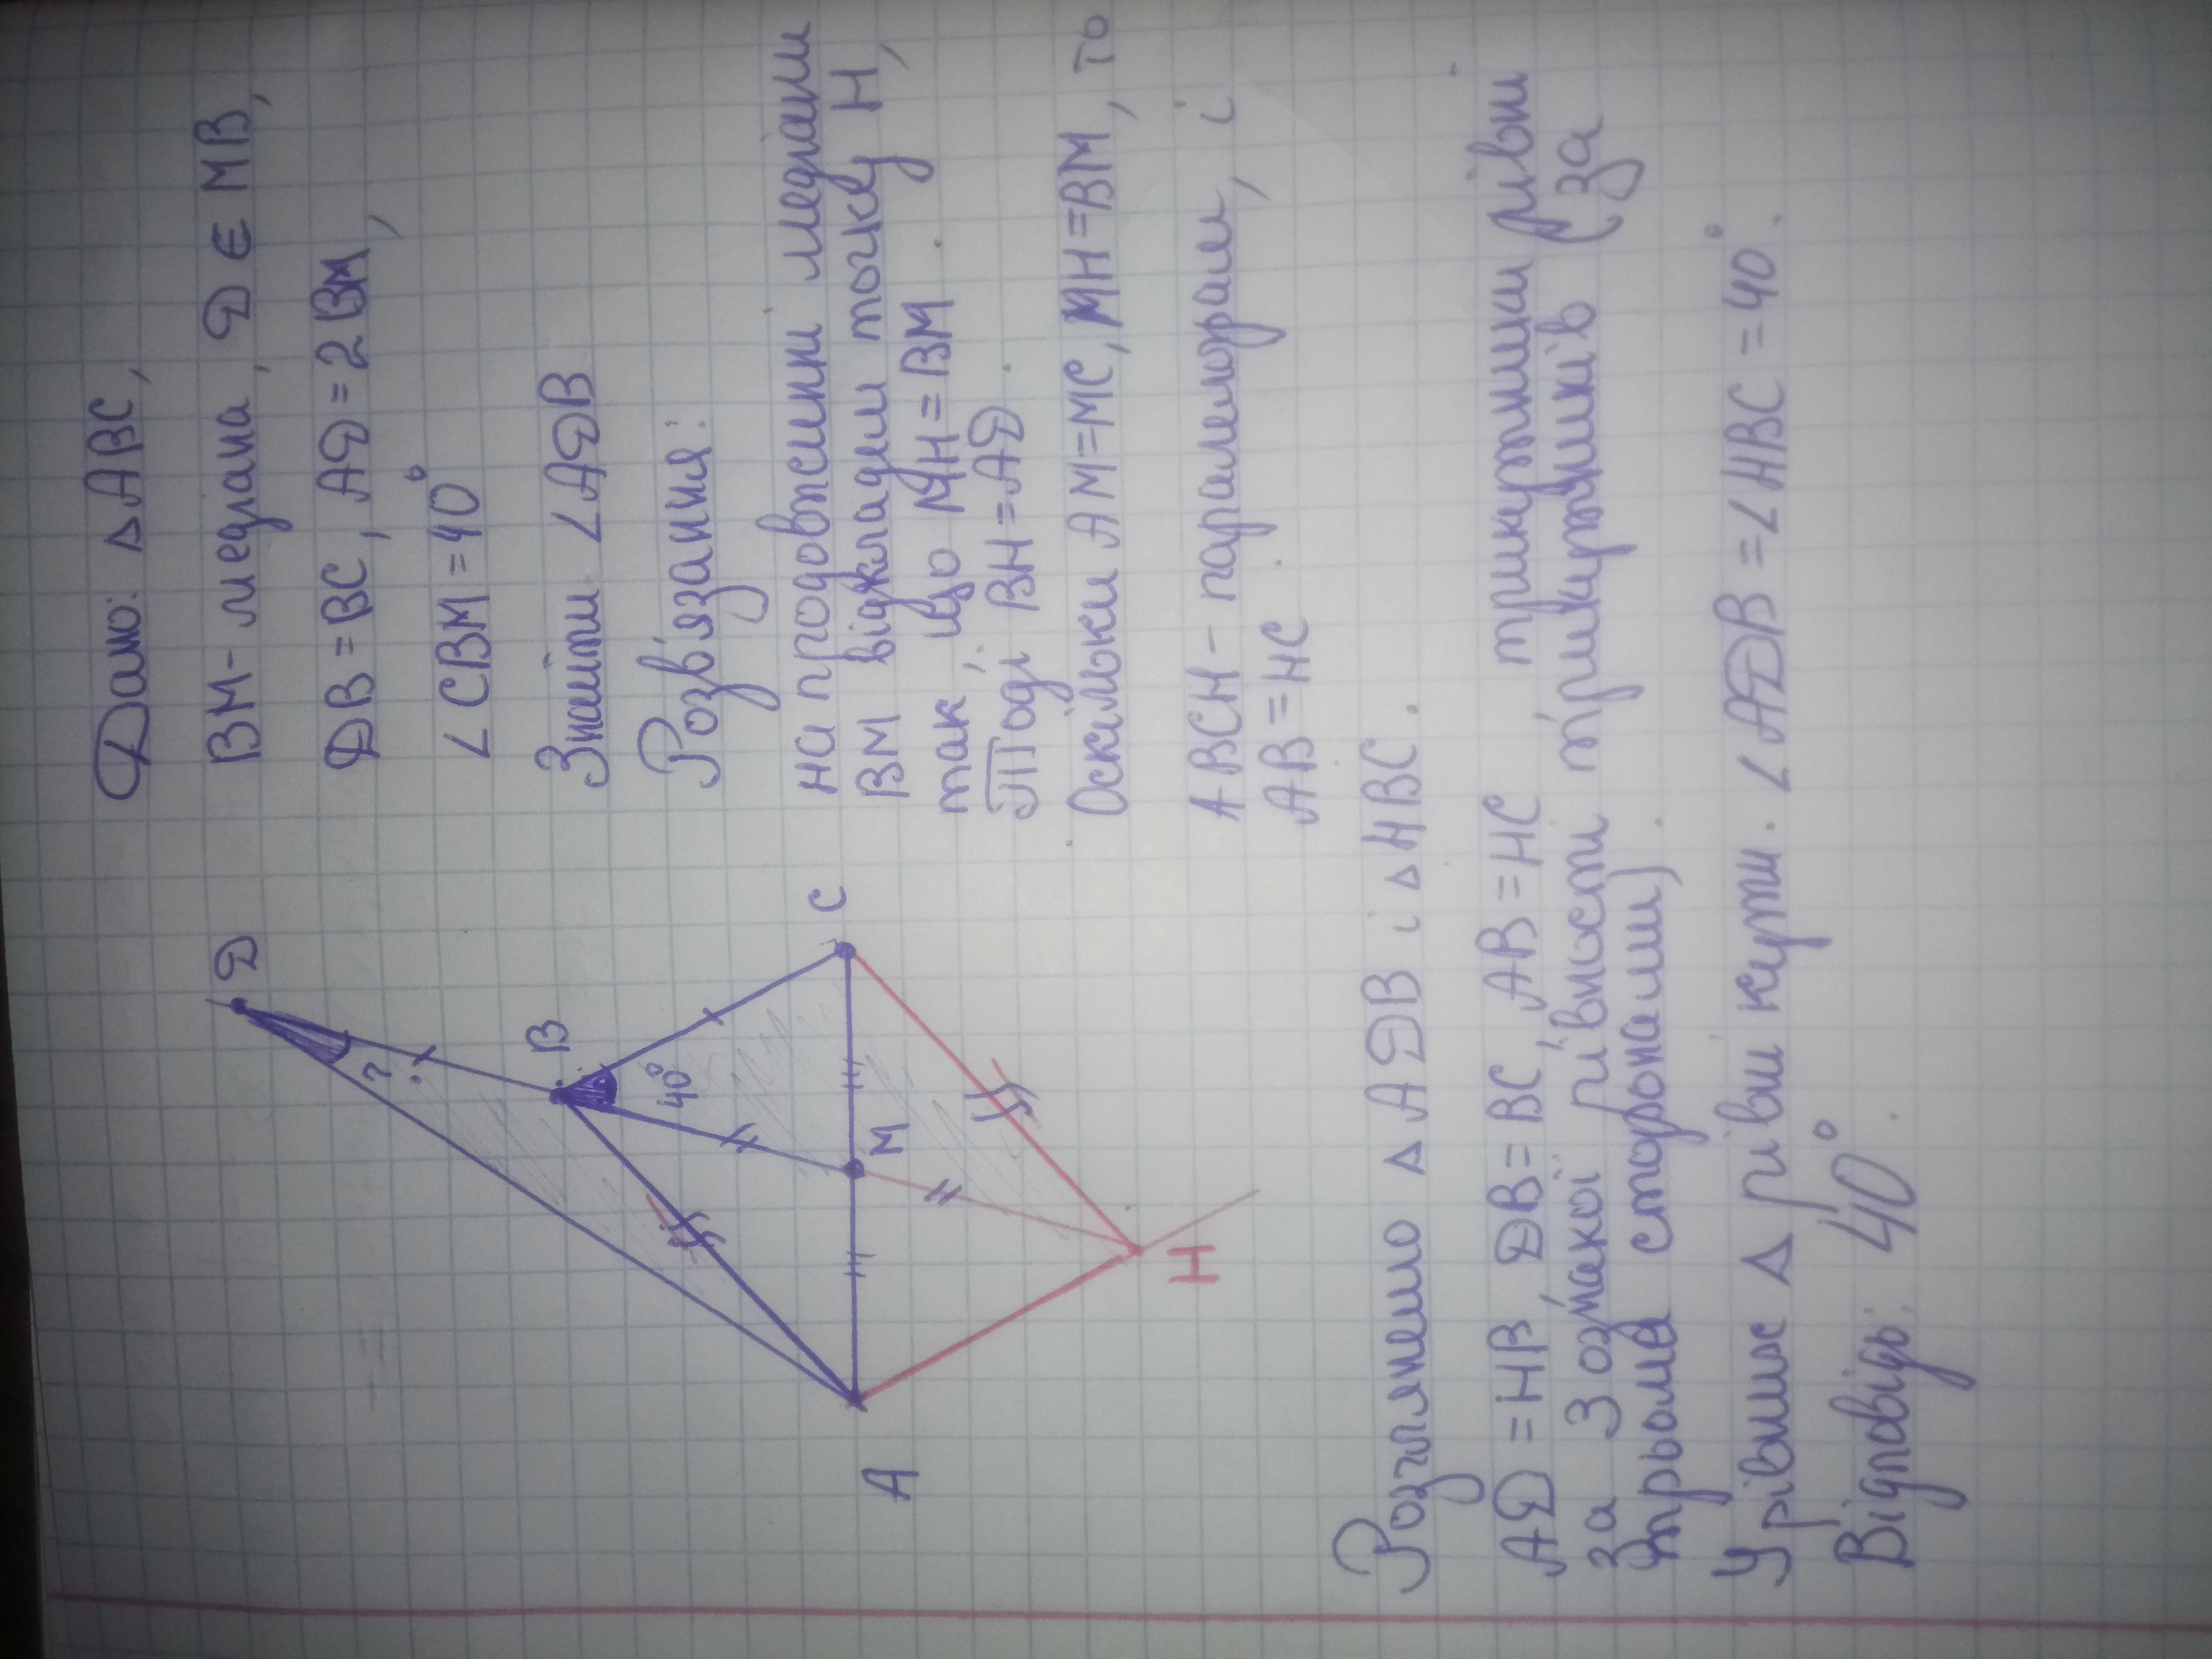 Дано: △ ABC,
BM - медіана, D ∈ MB,
DB = BC, AD = 2 BM,
∠ CBM = 40°
Знайти ∠ ADB
Розв'язання:
на продовженні медіани
BM відкладем точку H,
так, що MH = BM.
Тоді BH = AD.
Оскільки AM = MC, MH = BM, то
ABCH - паралелограм, і
AB = HC
D
?
B
40°
C
M
A
H
Розглянемо △ ADB і △ HBC.
AD = HB, DB = BC, AB = HC трикутники рівні
за 3 ознакої рівності трикутників (за
трьома сторонами).
У рівних △ рівні кути. ∠ ADB = ∠ HBC = 40°.
Відповідь: 40°.